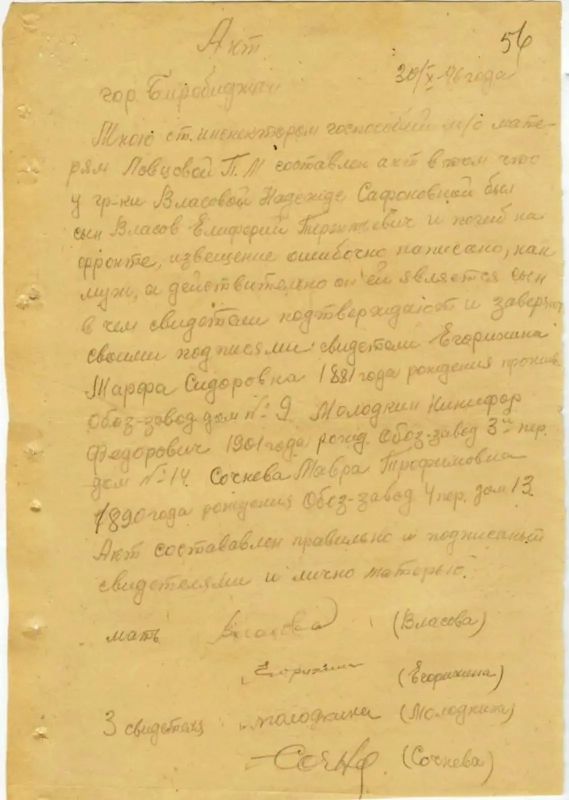 56
Акт
гор. Биробиджан 30/X-46 года
Мною ст. инспектором госпособий м/с мате-
рям Ловцовой П.М составлен акт в том что
у гр-ки Власовой Надежде Сафоновной был
сын Власов Елиферий Терентьевич и погиб на
фронте, извещение ошибочно написано, как
муж, а действительно он ей является сын
в чем свидетели подтверждают и заверяют
своими подписями: свидетели Егорихина
Марфа Сидоровна 1881 года рождения прожив.
Обоз-завод дом №9. Молодкин Никифор
Федорович 1901 года рожд. Обоз-завод 3й пер.
дом №14. Сочнева Мавра Трофимовна
1890 года рождения Обоз-завод 4 пер. дом 13.
Акт состававлен правильно и подписаный
свидетелями и лично матерью.
мать Власова (Власова)
Егорихина (Егорихина)
3 свидетеля молодкина (Молодкина)
Сочне (Сочнева)